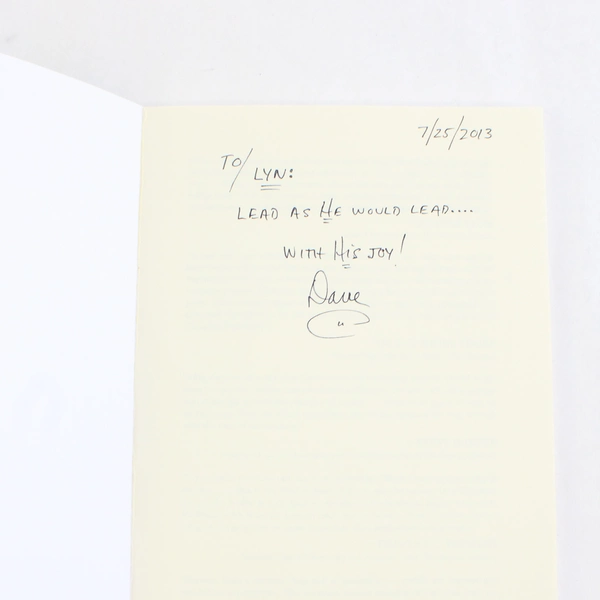 7/25/2013
TO/ LYN:
LEAD AS HE WOULD LEAD....
WITH HIS JOY!
Dave